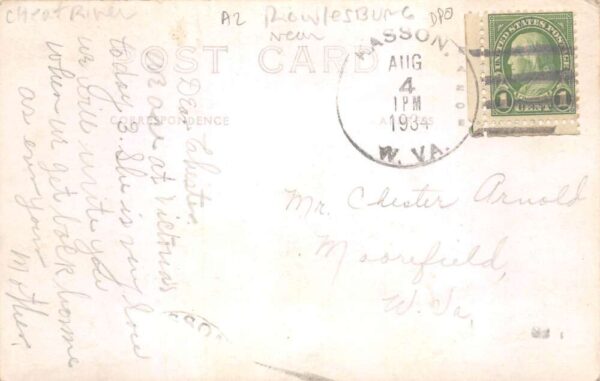 Cheat River
AZ Rowlesburg DPO
near
POST CARD
CORRESPONDENCE
KASSON,
AUG
4
1PM
1934
W. VA.
UNITED STATES POSTAGE
1 CENT 1
Dear Chester.
We are at Victorias
today. She is very low
we will write you
when we get back home
as ever your
Mother.
Mr. Chester Arnold
Moorefield,
W. Va.